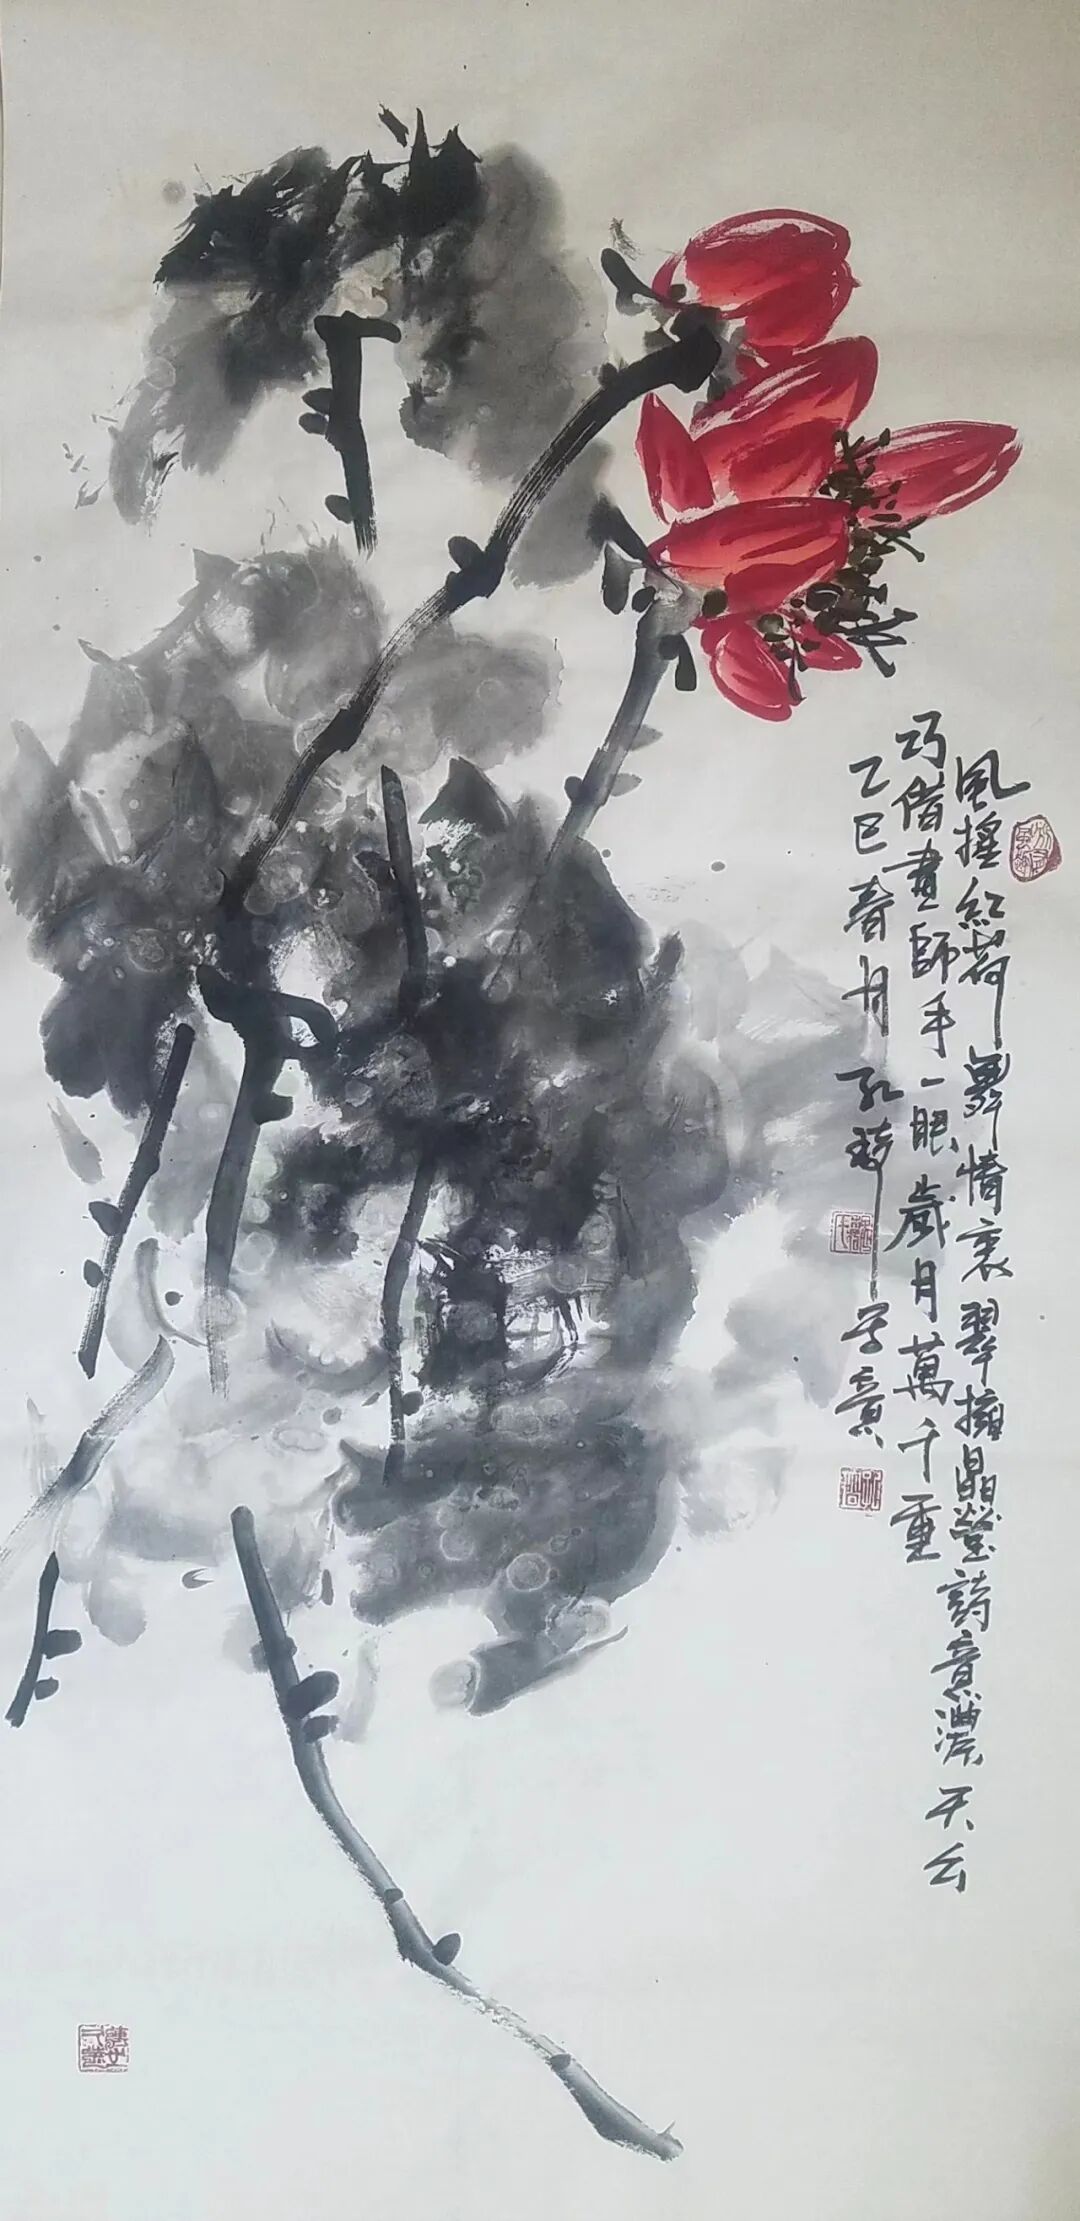 風摇紅荷舞情裹翠擁晶瑩詩意濃天公
巧借畫師手一眼歲月萬千重
乙巳春月 孔琦 写意